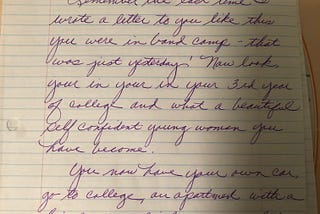 Remember the last time I
wrote a letter to you like this
you were in band camp - that
was just yesterday! Now look
your in your in your 3rd year
of college and what a beautiful
self confident young woman you
have become.
You now have your own car,
go to college, an apartment with a